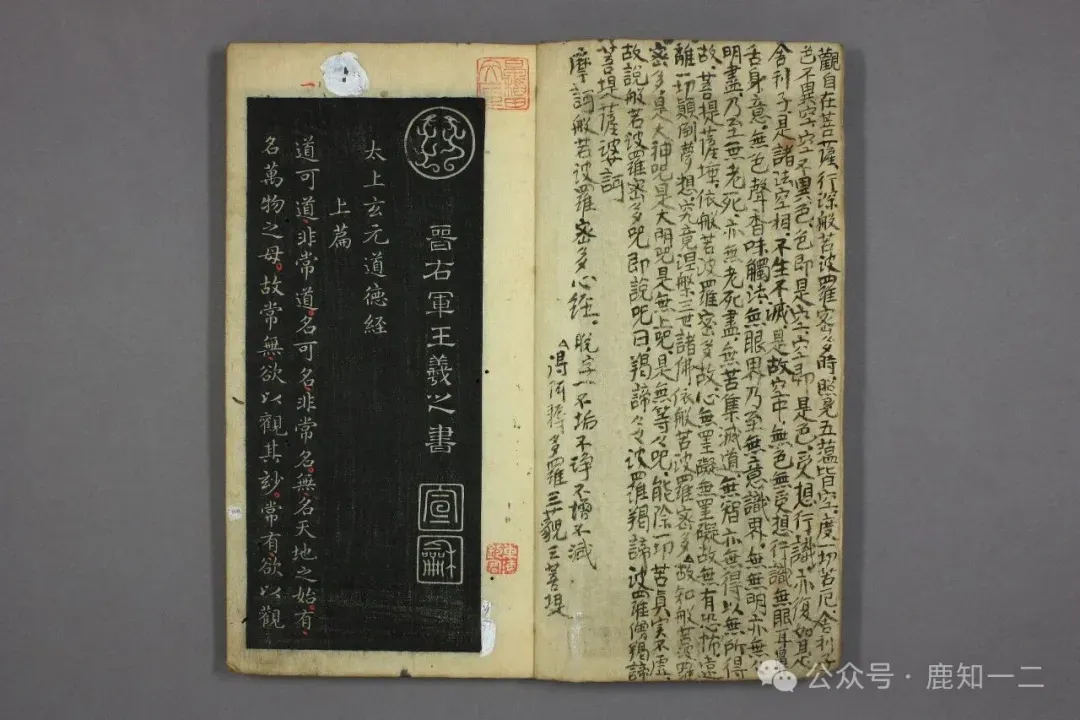 觀自在菩薩行深般若波羅密多時照見五蘊皆空度一切苦厄舍利子
色不異空空不異色色即是空空即是色受想行識亦復如是
舍利子是諸法空相不生不滅是故空中無色無受想行識無眼耳鼻
舌身意無色聲香味觸法無眼界乃至無意識界無無明亦無無
明盡乃至無老死亦無老死盡無苦集滅道無智亦無得以無所得
故菩提薩埵依般若波羅密多故心無罣礙無罣礙故無有恐怖遠
離一切顛倒夢想究竟涅槃三世諸佛依般若波羅密多故知般若波羅
密多是大神呪是大明呪是無上呪是無等々呪能除一切苦真实不虛
故說般若波羅密多呪即說呪曰羯諦々々波羅羯諦波羅僧羯諦
菩提薩婆訶
摩訶般若波羅密多心經 脫字一不垢不淨不增不減
得阿耨多羅三藐三菩提
晉右軍王羲之書
宣龢
太上玄元道德経
上篇
道可道非常道名可名非常名無名天地之始有
名萬物之母故常無欲以觀其妙常有欲以觀
公众号·鹿知一二